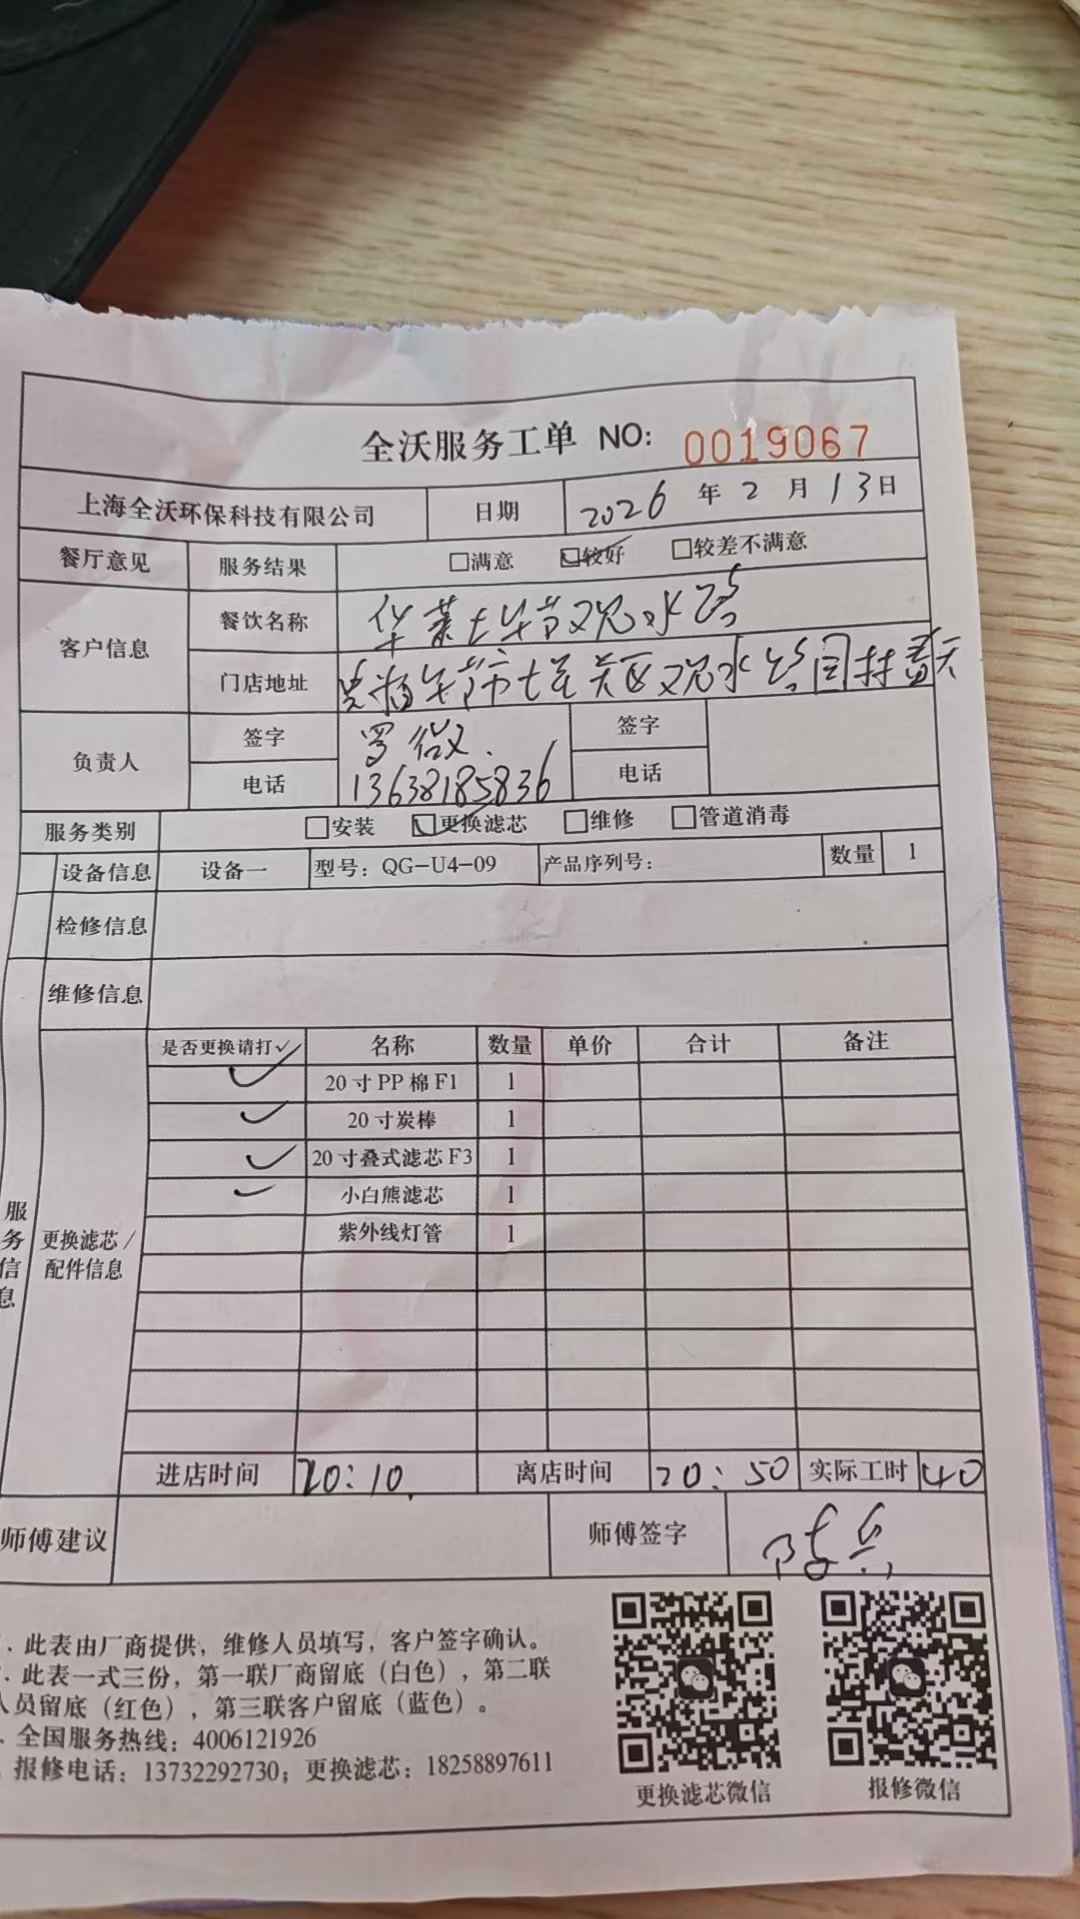 全沃服务工单 NO: 0019067
上海全沃环保科技有限公司 日期 2026 年 2 月 13 日
餐厅意见 服务结果 □满意 ☑较好 □较差不满意
客户信息 餐饮名称 华莱士毕节观水路
门店地址 贵州毕节市七星关区观水路
负责人 签字 罗微. 签字
电话 13638185836 电话
服务类别 □安装 ☑更换滤芯 □维修 □管道消毒
设备信息 设备一 型号: QG-U4-09 产品序列号: 数量 1
检修信息
维修信息
服务信息
更换滤芯/配件信息
是否更换请打✓ 名称 数量 单价 合计 备注
✓ 20寸PP棉F1 1
✓ 20寸炭棒 1
✓ 20寸叠式滤芯F3 1
✓ 小白熊滤芯 1
紫外线灯管 1
进店时间 20:10 离店时间 20:50 实际工时 40
师傅建议 师傅签字
. 此表由厂商提供，维修人员填写，客户签字确认。
. 此表一式三份，第一联厂商留底（白色），第二联
人员留底（红色），第三联客户留底（蓝色）。
. 全国服务热线: 4006121926
报修电话: 13732292730; 更换滤芯: 18258897611
更换滤芯微信 报修微信